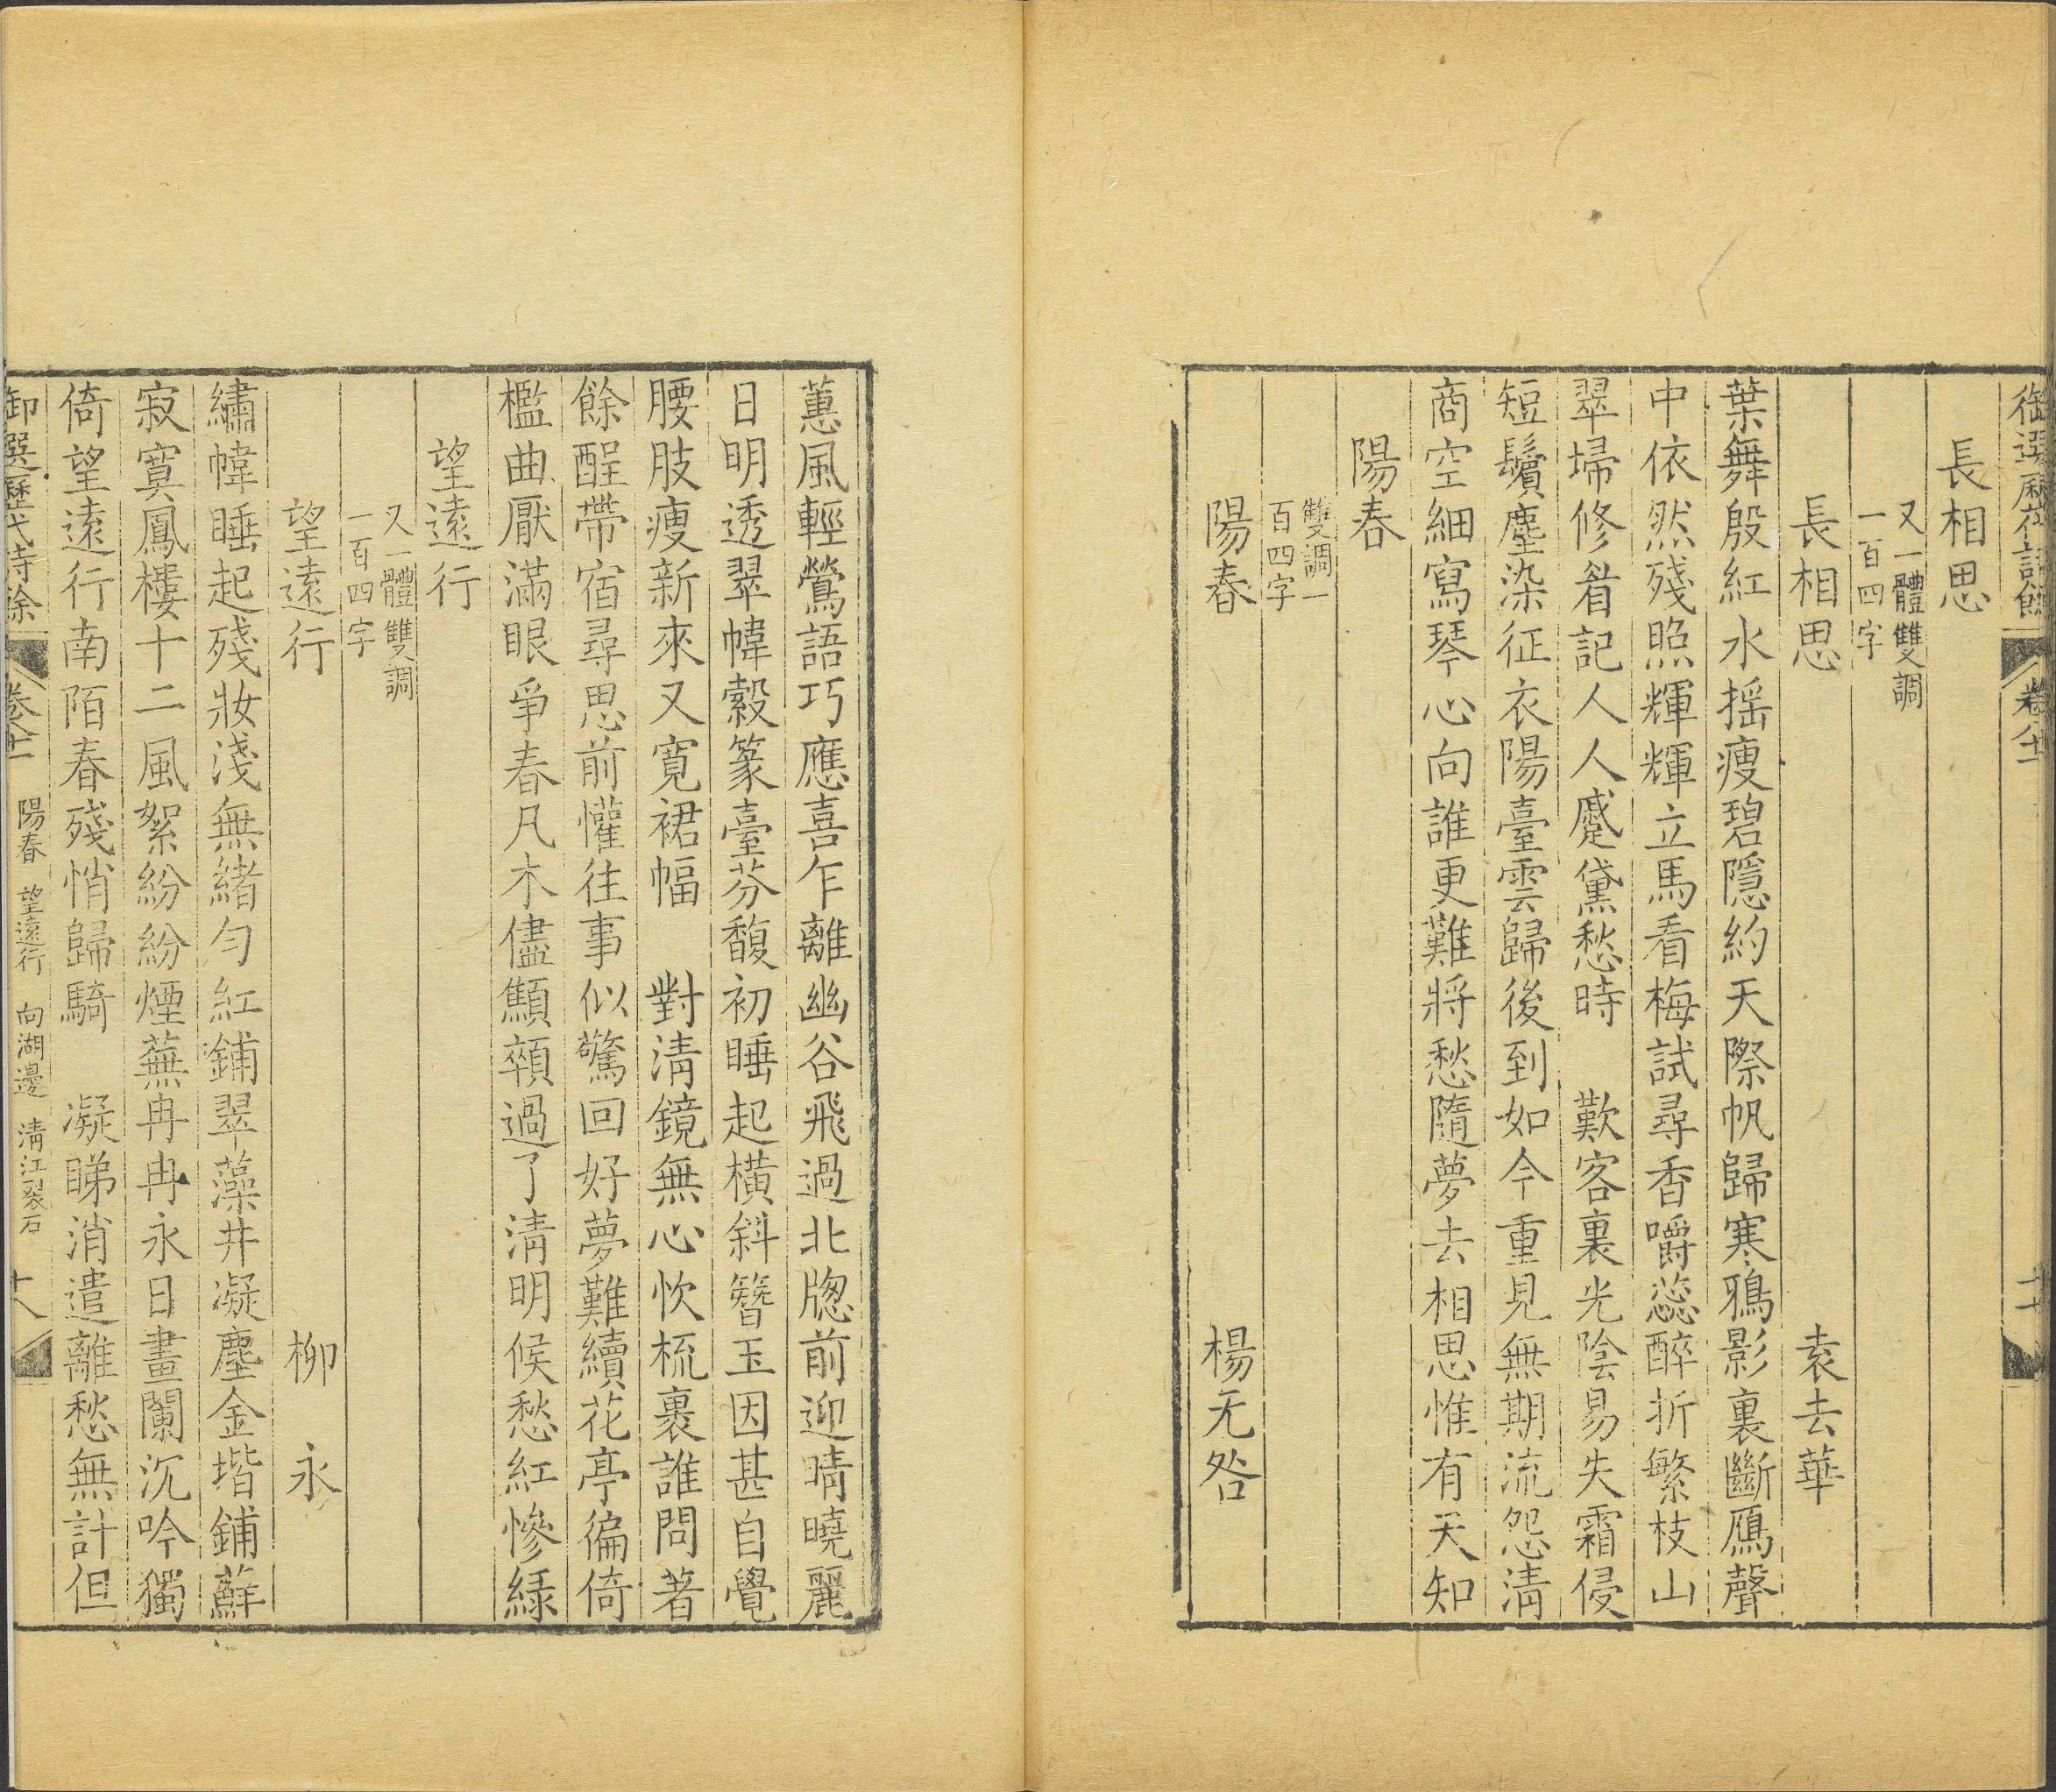 長相思
又一體雙調
一百四字
長相思 袁去華
葉舞殷紅水搖瘦碧隱約天際帆歸寒鴉影裏斷鴈聲
中依然殘照輝輝立馬看梅試尋香嚼蕊醉折繁枝山
翠埽修眉記人人蹙黛愁時 歎客裏光陰易失霜侵
短鬢塵染征衣陽臺雲歸後到如今重見無期流怨清
商空細寫琴心向誰更難將愁隨夢去相思惟有天知
陽春
雙調一
百四字
陽春 楊无咎
蕙風輕鶯語巧應喜乍離幽谷飛過北牕前迎晴曉麗
日明透翠幃縠篆臺芬馥初睡起橫斜簪玉因甚自覺
腰肢瘦新來又寬裙幅 對清鏡無心忺梳裹誰問著
餘酲帶宿尋思前懽往事似驚回好夢難續花亭徧倚
檻曲厭滿眼爭春凡木儘顦顇過了清明候愁紅慘綠
望遠行
又一體雙調
一百四字
望遠行 柳永
繡幃睡起殘妝淺無緒勻紅鋪翠藻井凝塵金堦鋪蘚
寂寞鳳樓十二風絮紛紛煙蕪冉冉永日畫闌沉吟獨
倚望遠行南陌春殘悄歸騎 凝睇消遣離愁無計但
御選歷代詩餘 陽春 望遠行 向湖邊 清江裂石 十八